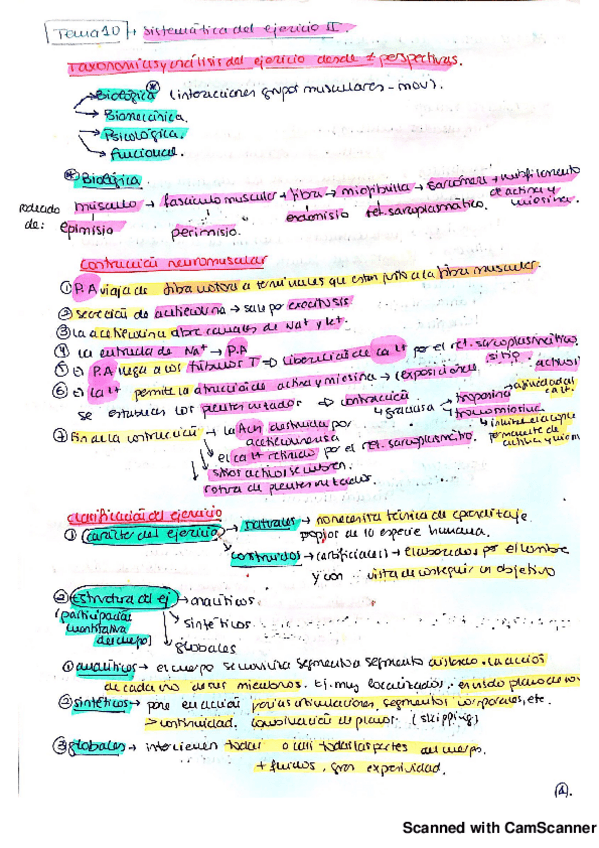 Tema 10 + Sistemática del ejercicio II.
Taxonomías y análisis del ejercicio desde ≠ perspectivas.
→ Biológica * (interacciones grupos musculares - mov).
→ Biomecánica.
→ Psicológica.
→ funcional.
* Biológica
rodeado de:
músculo → fascículo muscular → fibra → miofibrilla → sarcómero + miofilamento de actina y miosina.
epimisio perimisio. endomisio ret. sarcoplasmático.
Contracción neuromuscular
① P.A viaja de fibra motora a terminales que están junto a la fibra muscular.
② secreción de acetilcolina → sale por exocitosis
③ la acetilcolina abre canales de Na+ y
④ la entrada de Na+ → P.A
⑤ el P.A llega a los túbulos T ⇒ liberación de Ca++ por el ret. sarcoplasmático.
⑥ el Ca++ permite la atracción de actina y miosina → (exposición
se establecen los puentes cruzados ⇒ contracción
↳ gracias a → troponina → afinidad al
→ tropomiosina
⑦ fin de la contracción → la Ach destruida por acetilcolinesterasa
↓ el Ca++ retirado por el ret. sarcoplasmático.
↓ sitios activos se cubren.
rotura de puentes cruzados.
Clasificación del ejercicio
① carácter del ejercicio → naturales → no necesita técnica de aprendizaje
propio de la especie humana.
→ construidos → (artificiales) → elaborados por el hombre
y con vista de conseguir un objetivo
② estructura del ej → analíticos.
(participación cuantitativa del cuerpo) → sintéticos
→ globales
① analíticos → el cuerpo se moviliza segmento a segmento aislando la acción
de cada uno de sus miembros. Ej. muy localizados. en un solo plano de mov
② sintéticos → pone en acción varias articulaciones, segmentos corporales, etc.
> continuidad. combinación de planos. (skipping)
③ globales → intervienen todas o casi todas las partes del cuerpo.
+ fluidos, gran expresividad.
(1).
Scanned with CamScanner